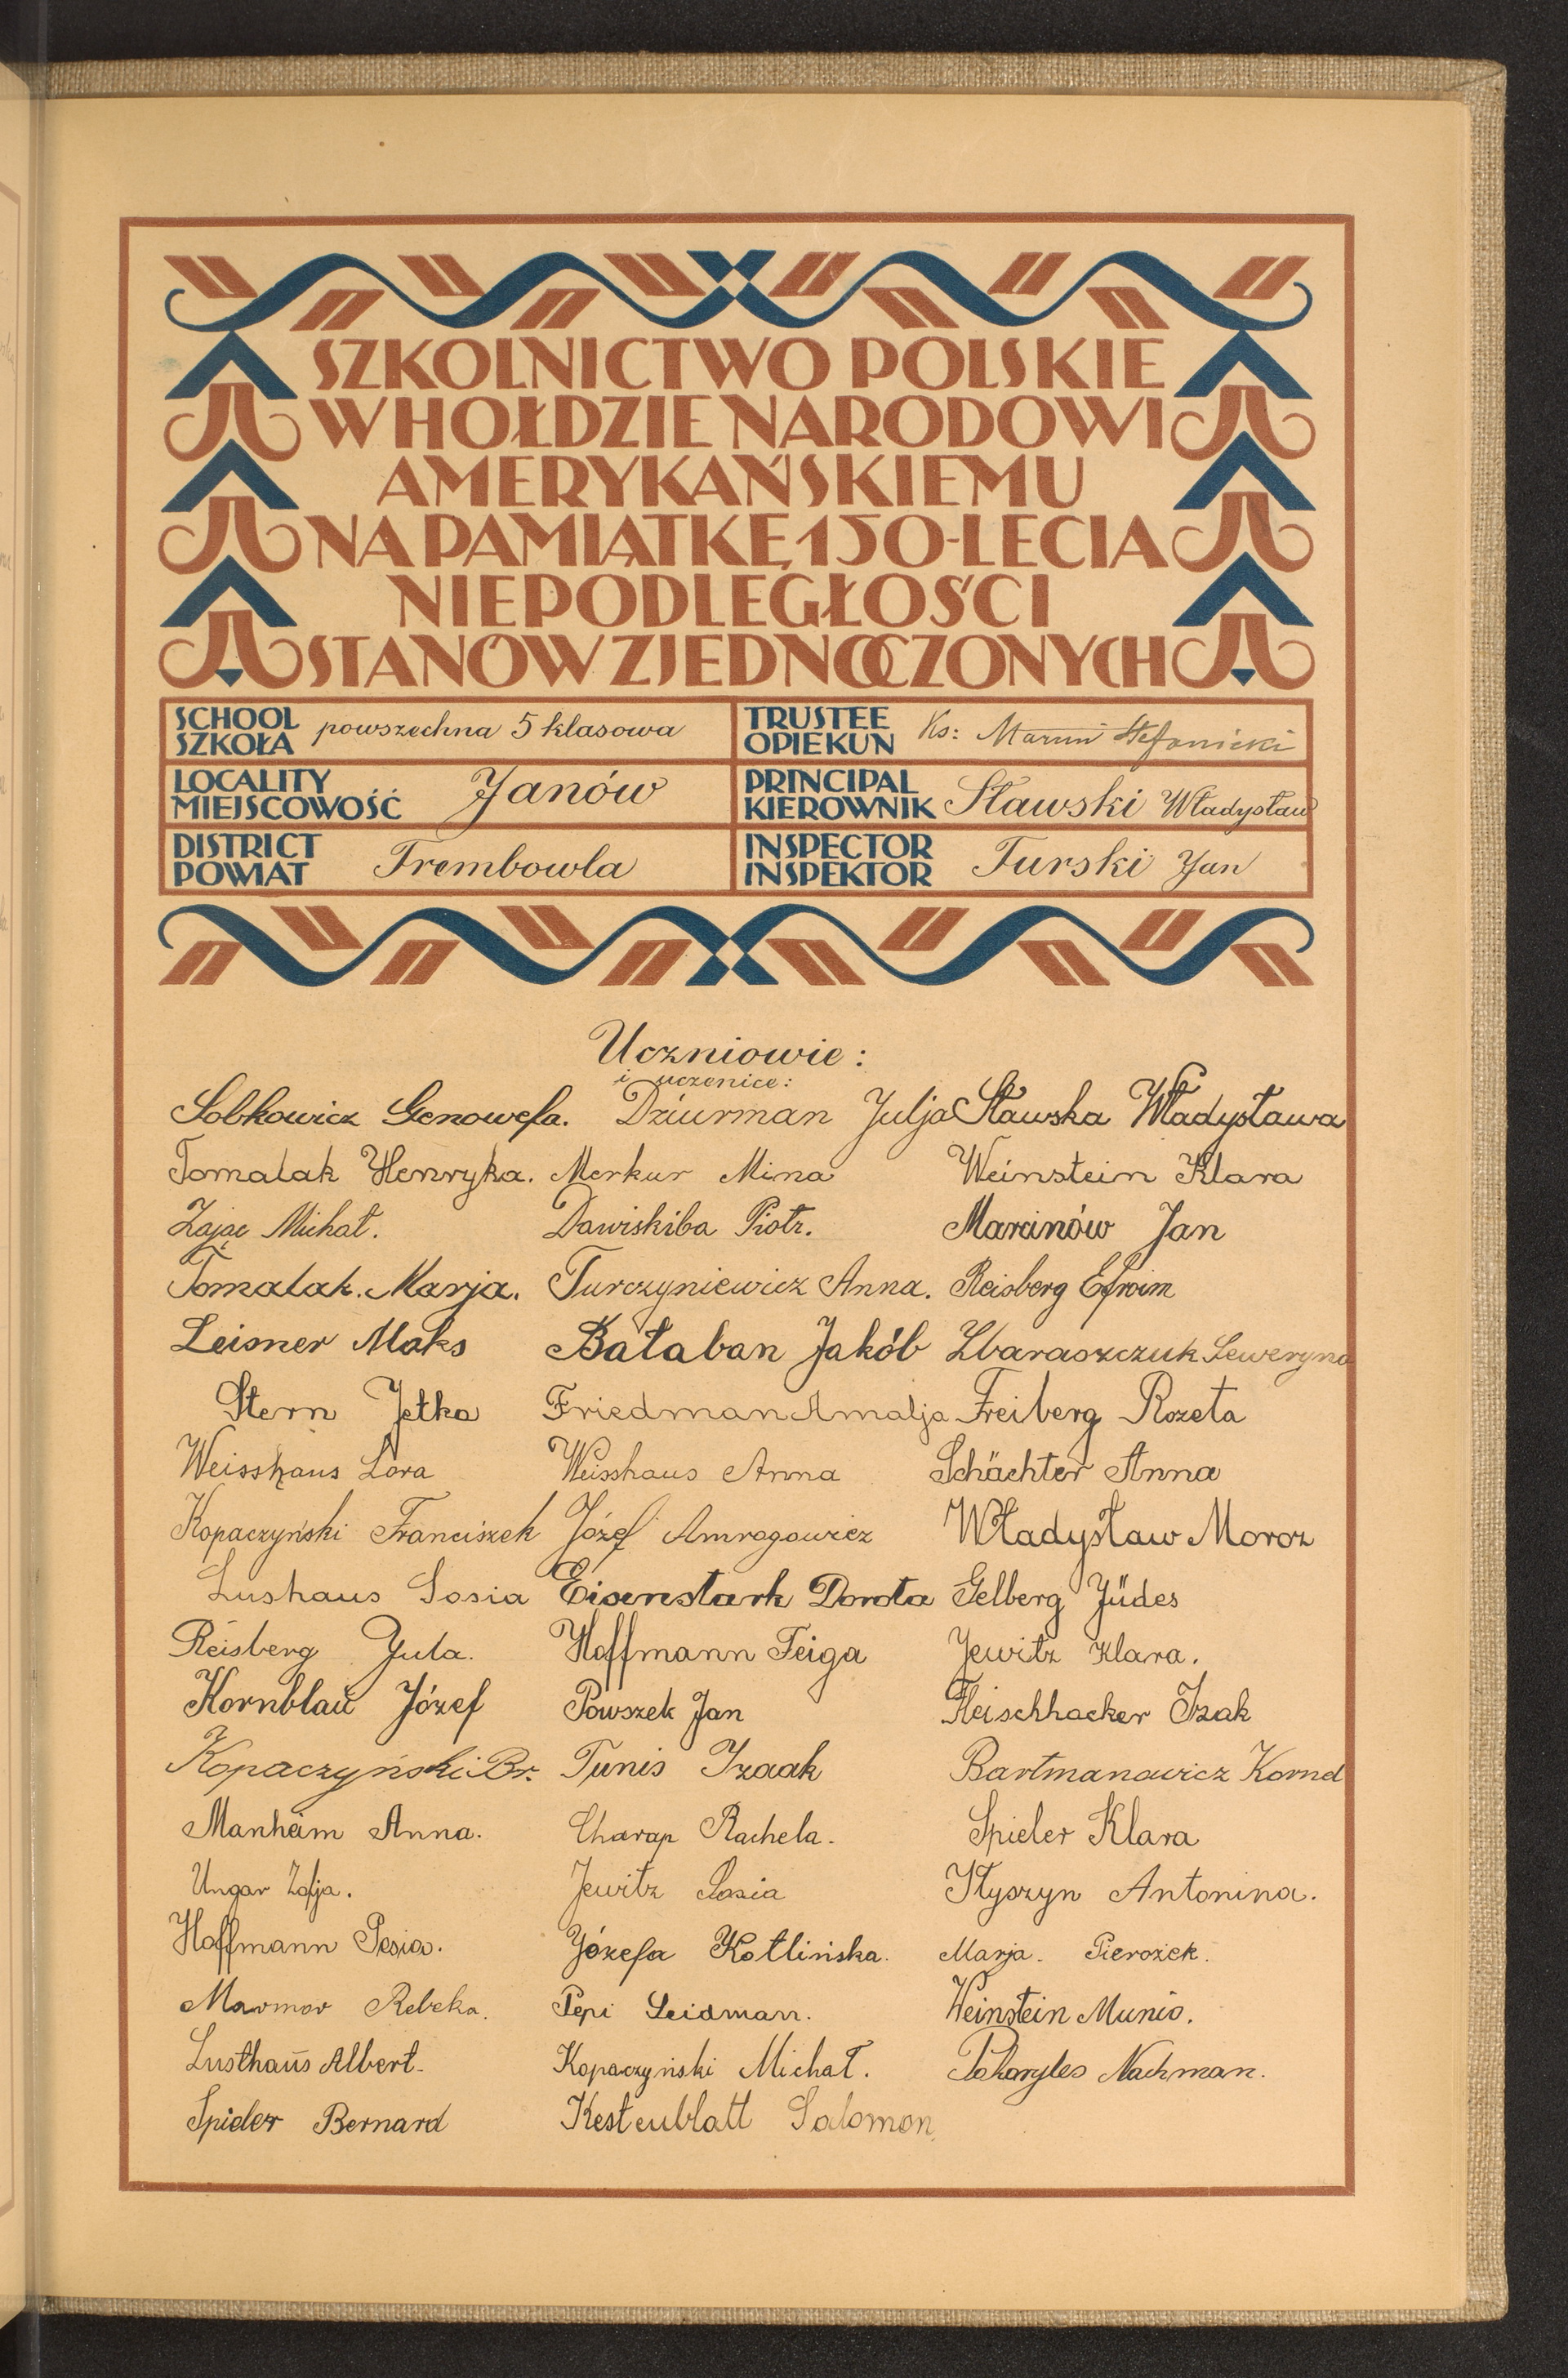 SZKOLNICTWO POLSKIE
W HOŁDZIE NARODOWI
AMERYKAŃSKIEMU
NA PAMIĄTKĘ 150-LECIA
NIEPODLEGŁOŚCI
STANÓW ZJEDNOCZONYCH
SCHOOL
SZKOŁA
powszechna 5 klasowa
TRUSTEE
OPIEKUN
Ks: Marcin Stefanicki
LOCALITY
MIEJSCOWOŚĆ
Janów
PRINCIPAL
KIEROWNIK
Sławski Władysław
DISTRICT
POWIAT
Trembowla
INSPECTOR
INSPEKTOR
Turski Jan
Uczniowie:
i uczenice:
Sobkowicz Genowefa. Dziurman Julja Sławska Władysława
Tomalak Henryka. Merkur Mina Weinstein Klara
Zając Michał. Dawiskiba Piotr. Marcinów Jan
Tomalak. Marja. Turczyniewicz Anna. Reisberg Efroim
Leisner Maks Bałaban Jakób Zbaraszczuk Seweryna
Stern Jetka Friedman Amalja Freiberg Rozeta
Weisshaus Lora Weisshaus Anna Schächter Anna
Kopaczyński Franciszek Józef Amrogowicz Władysław Moroz
Lushaus Sosia Eisenstark Dorota Gelberg Jüdes
Reisberg Juta. Hoffmann Feiga Jewitz Klara.
Kornblau Józef Powszek Jan Fleischhacker Izak
Kopaczyński Br. Tunis Izaak Bartmanowicz Kornel
Manheim Anna. Charap Rachela. Spieler Klara
Ungar Zofja. Jewitz Sosia Ityszyn Antonina.
Hoffmann Pesia. Józefa Kotlińska. Marja. Pierożek.
Marmor Rebeka. Pepi Seidman. Weinstein Munio.
Lusthaus Albert. Kopaczyński Michał. Pohoryles Nachman.
Spieler Bernard Kestenblatt Salomon.